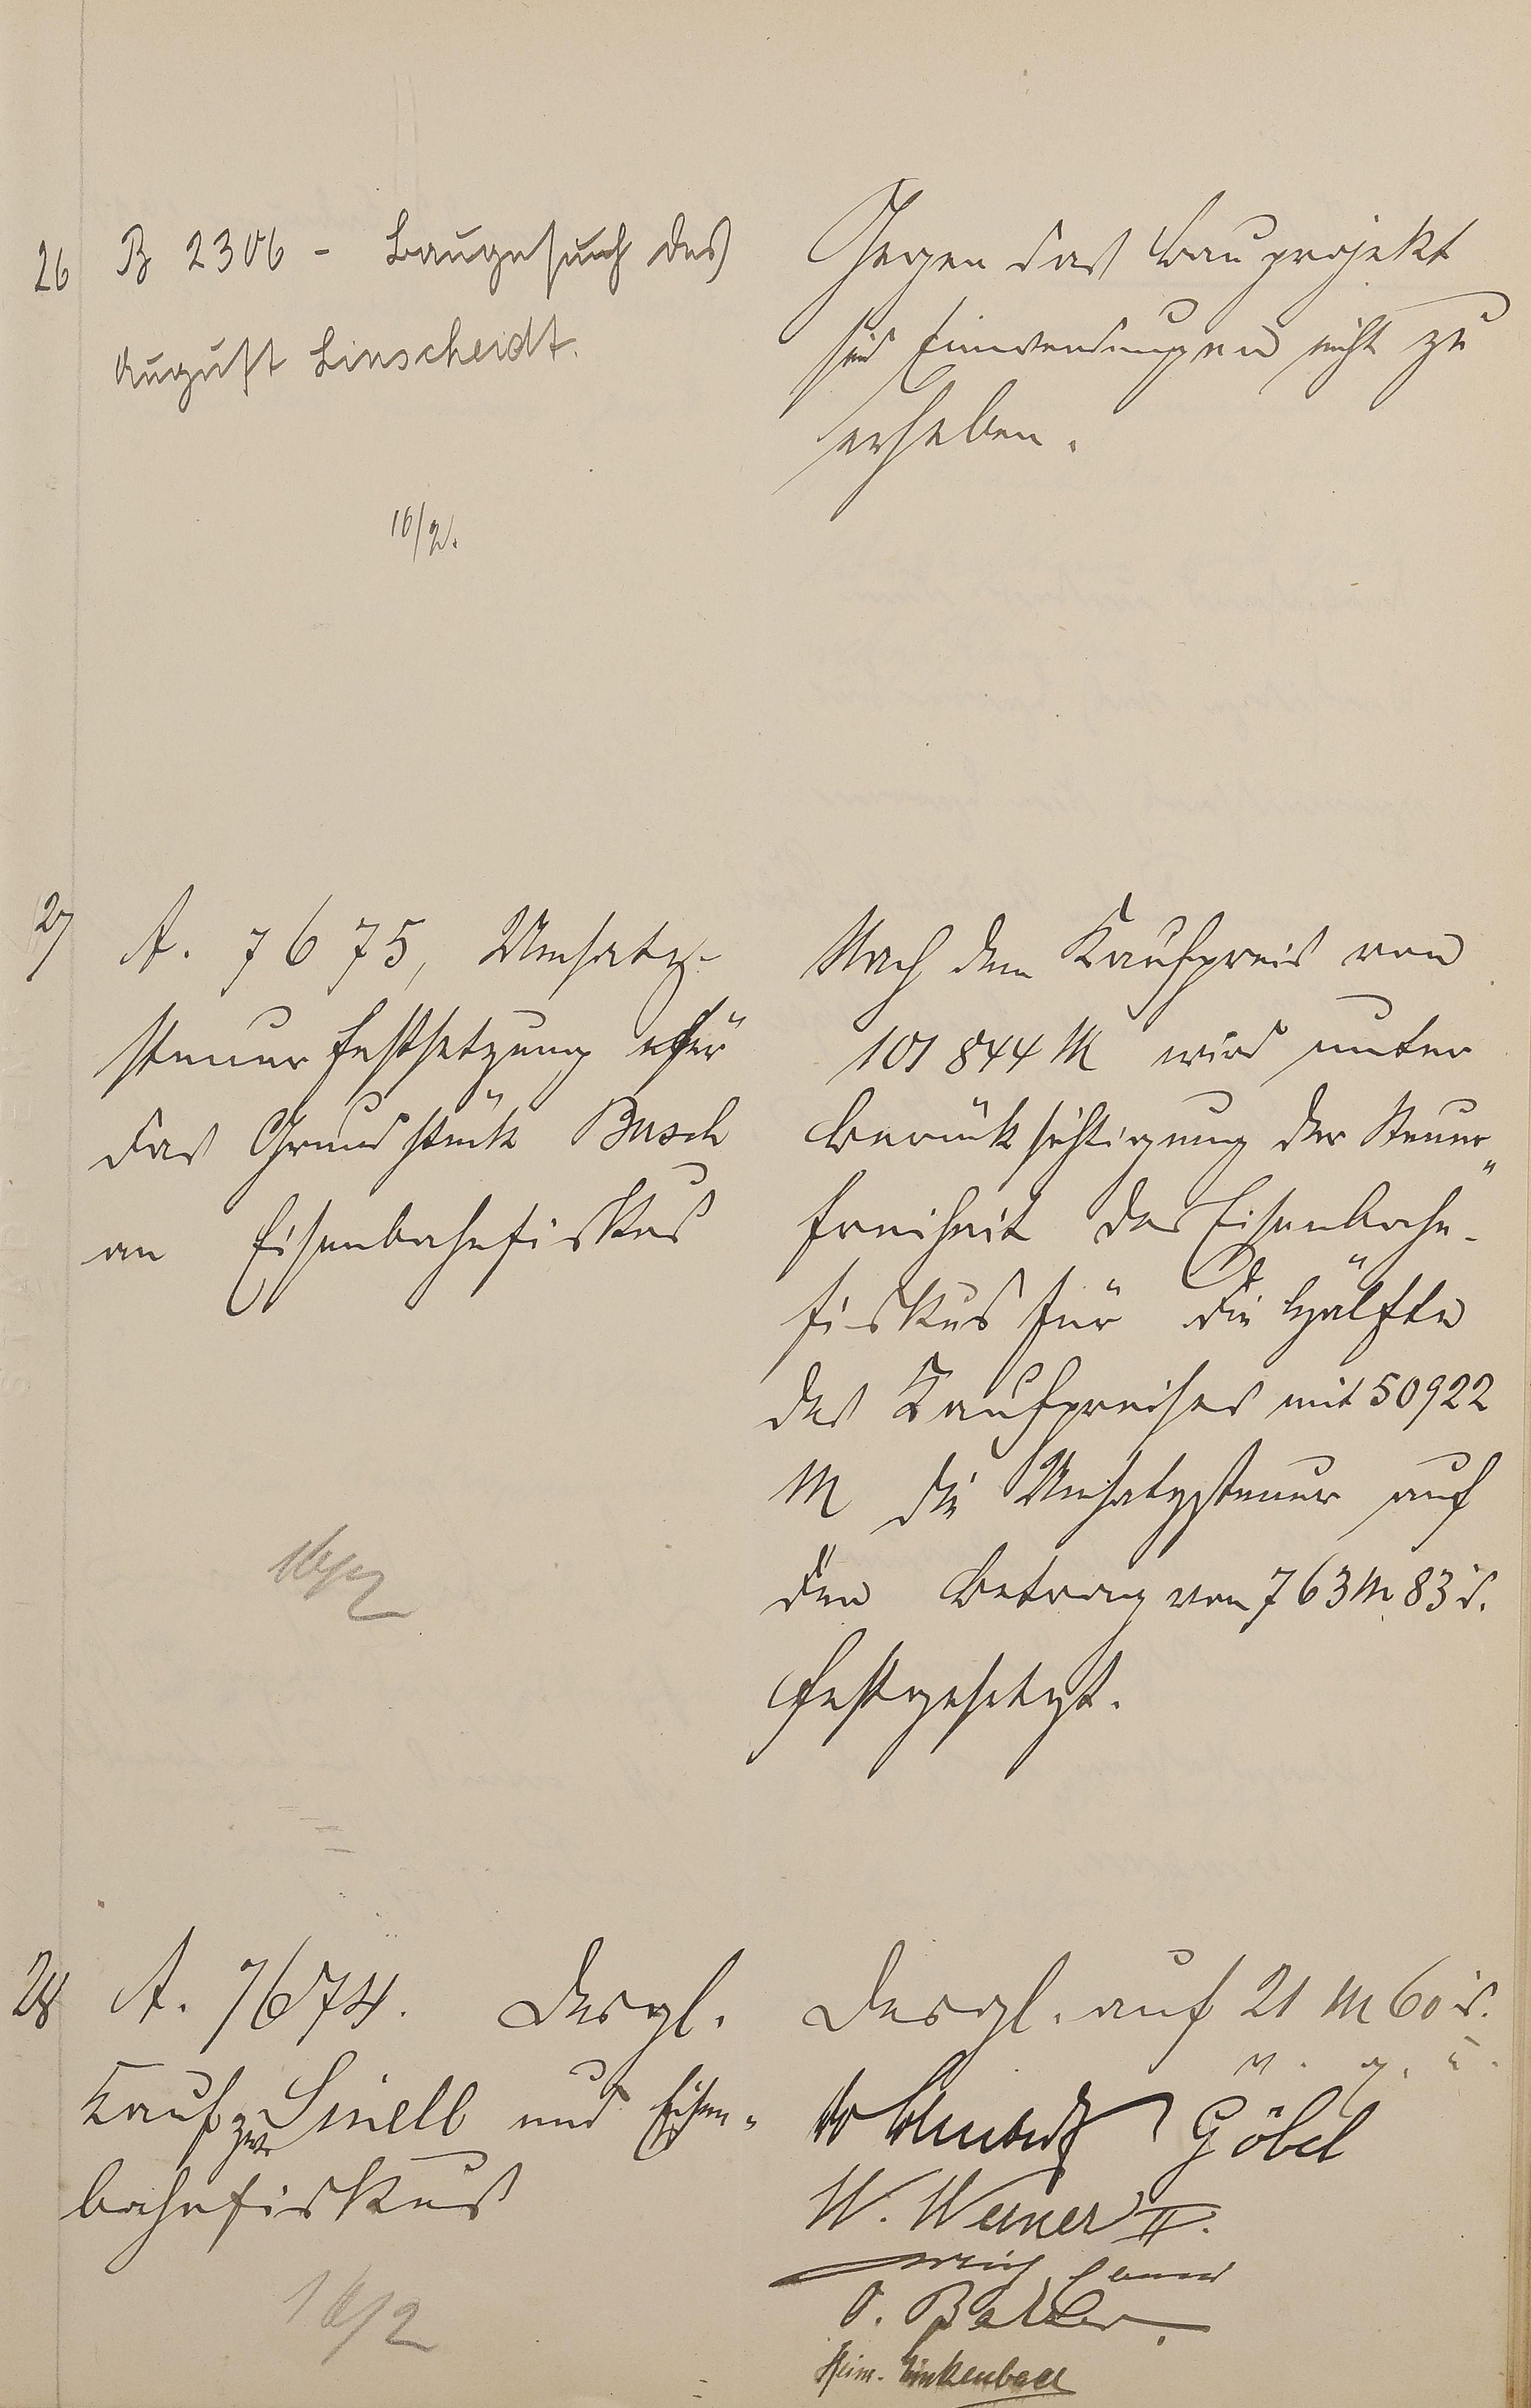 26 B 2306 - Baugesuch des
August Linscheidt.
16/2.
Gegen das Bauprojekt
sind Einwendungen nicht zu
erheben.
27 A. 7675, Umsatz-
steuerfestsetzung für
das Grundstück Busch
an Eisenbahnfiskus
16/2
Nach dem Kaufpreis von
101 844 M wird unter
Berücksichtigung der Steuer„
freiheit des Eisenbahn-
fiskus für die Hälfte
des Kaufpreises mit 50922
M die Umsatzsteuer auf
den Betrag von 763 M 83 d.
festgesetzt.
28 A. 7674. Desgl.
Kauf zw. Sinell und Eisen„
bahnfiskus
16/2
Desgl. auf 21 M 60 d.
v. g. u.
Göbel
W. Werner II.
O. Balzer.
Heinr. Linkenbach